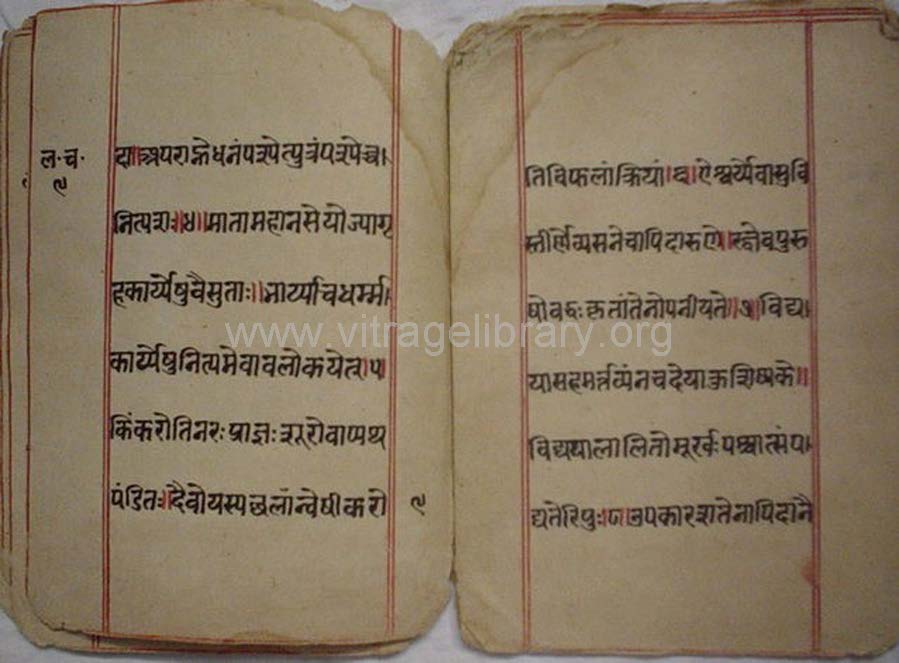 ल॰च॰
९
दा॥अपराह्नेधनंपश्येत्पुत्रंपश्येच्च।
नित्यशः॥४॥मातामहानसेयोज्यागृ
हकार्य्येषुवैसुताः॥भार्य्याचधर्म्म।
कार्य्येषुनित्यमेवावलोकयेत्॥५।
किंकरोतिनरःप्राज्ञःशूरोवाप्यथ
पंडितः॥दैवोयस्यछलांन्वेषीकरो
९
तिविफलांक्रियां॥६॥ऐश्वर्य्येवासुवि
स्तीर्णेव्यसनेवापिदारुणे॥रज्वेवपुरु
षोवद्धःकृतांतेनोपनीयते॥७॥विद्या।
यासहमर्त्तव्यंनचदेयाकुशिष्यके॥
विद्ययालालितोमूर्खःपश्चात्संपा।
द्यतेरिपुः॥८॥उपकारशतेनापिदानै
www.vitragelibrary.org